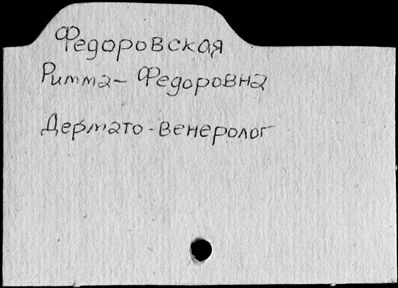 Федоровская
Римма-Федоровна
Дермато-венеролог